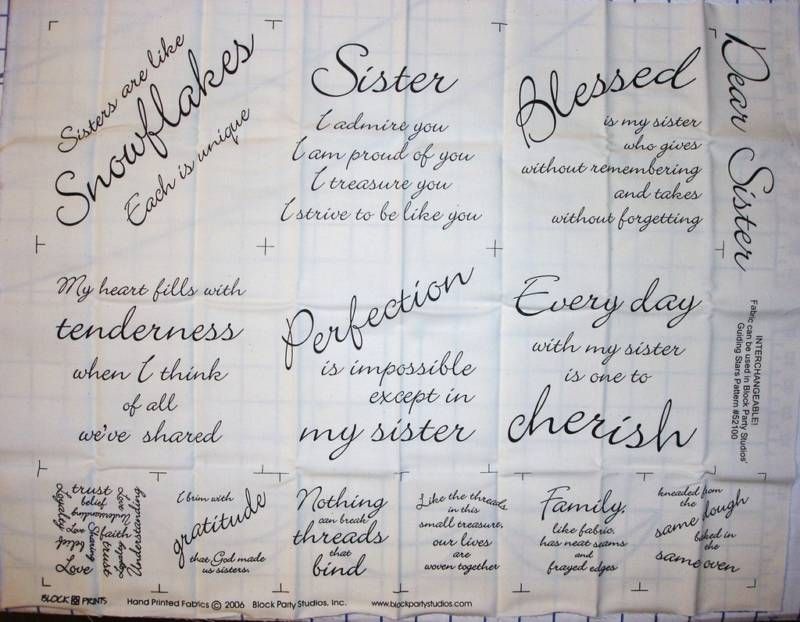 Sisters are like
Snowflakes
Each is unique
Sister
I admire you
I am proud of you
I treasure you
I strive to be like you
Blessed
is my sister
who gives
without remembering
and takes
without forgetting
Dear Sister
My heart fills with
tenderness
when I think
of all
we've shared
Perfection
is impossible
except in
my sister
Every day
with my sister
is one to
cherish
INTERCHANGEABLE!
Fabric can be used in Block Party Studios'
Guiding Stars Pattern #52100
trust
belief
Understanding
Loyalty
Love
Sharing
faith
trust
Loyalty
Love
Understanding
belief
Love
I brim with
gratitude
that God made
us sisters.
Nothing
can break
threads
that
bind
Like the threads
in this
small treasure,
our lives
are
woven together
Family,
like fabric,
has neat seams
and
frayed edges
kneaded from
the
same dough
baked in
the
same oven
BLOCK PRINTS Hand Printed Fabrics © 2006 Block Party Studios, Inc. www.blockpartystudios.com